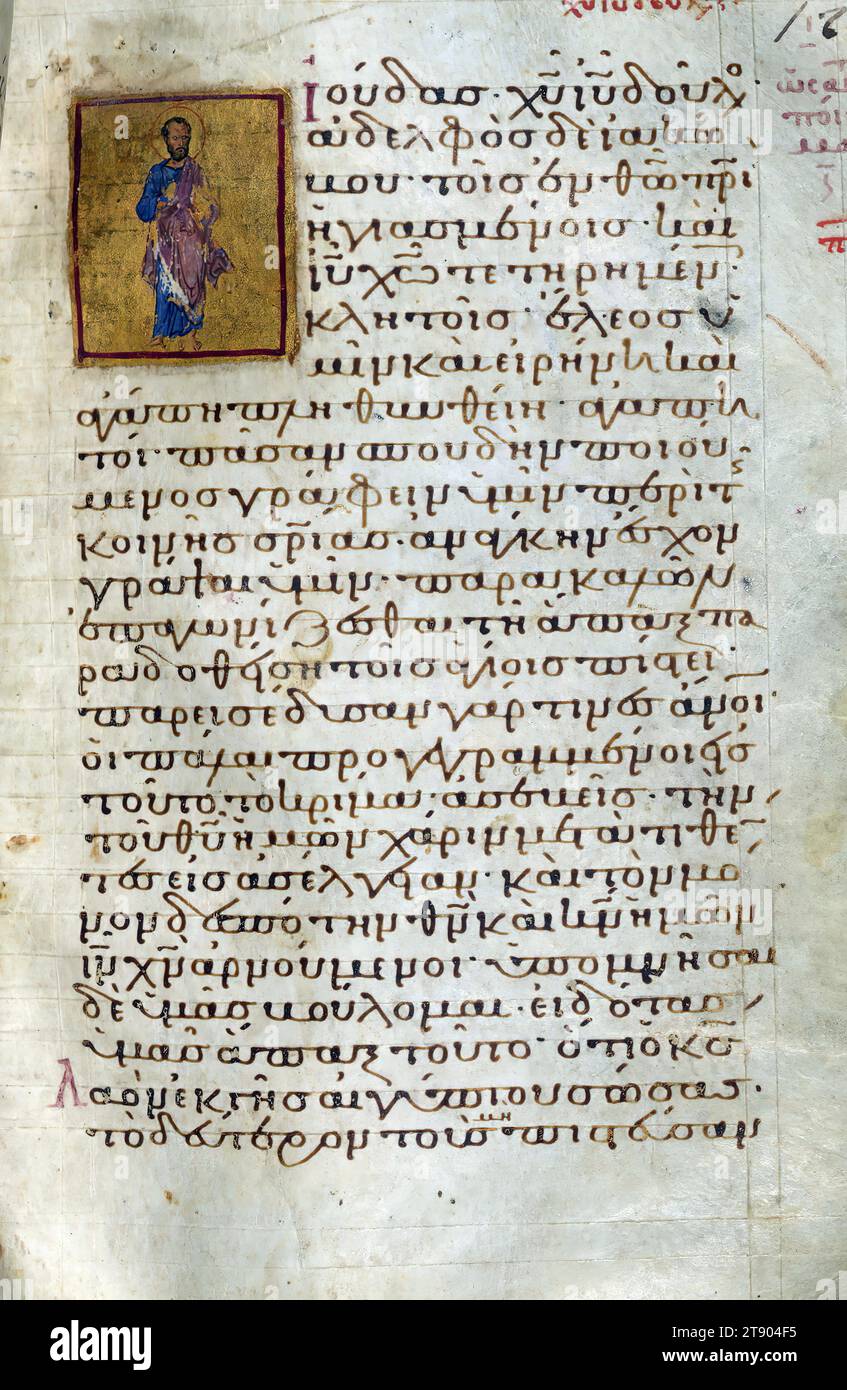 Ἰούδας· χ̅υ̅ ἰ̅υ̅ δοῦλο
ἀδελφὸσ δὲ ἰακώ
βου· τοῖσ ἐν θ̅ω̅ π̅ρ̅ι̅
ἡγιασμένοισ· καὶ
ἰ̅υ̅ χ̅ω̅ τετηρημέν
κλητοῖσ· ἔλεοσ ὑ
μῖν καὶ εἰρήνη καὶ
ἀγάπη πληθυνθείη· ἀγαπη
τοί· πᾶσαν σπουδὴν ποιού
μενοσ γράφειν ὑμῖν περὶ τ
κοινῆσ σ̅ρ̅ίασ· ἀνάγκην ἔσχον
γράψαι ὑμῖν· παρακαλῶν
ἐπαγωνίζεσθαι τῆ ἅπαξ πα
ραδοθείση τοῖσ ἁγίοισ πίστει·
παρεισέδυσαν γάρ τινεσ ἄνοι
οἱ πάλαι προγεγραμμένοι εἰσ
τοῦτο τὸ κρίμα· ἀσεβεῖσ· τὴν
τοῦ θ̅υ̅ ἡμῶν χάριν μετατιθέ
τεσ εἰσ ἀσέλγειαν· καὶ τὸν μό
νον δεσπότην θ̅ν̅ καὶ κ̅ν̅ ἡμῶν
ἰ̅ν̅ χ̅ν̅ ἀρνούμενοι· ὑπομνῆσαι
δὲ ὑμᾶσ βούλομαι· εἰδότασ
ὑμᾶσ ἅπαξ τοῦτο· ὅτι ὁ κ̅σ̅
λαὸν ἐκ γῆσ αἰγύπτου σώσασ·
τὸ δεύτερον τοὺσ μὴ πιστεύσαν
alamy
Image ID: 2T904F5
www.alamy.com